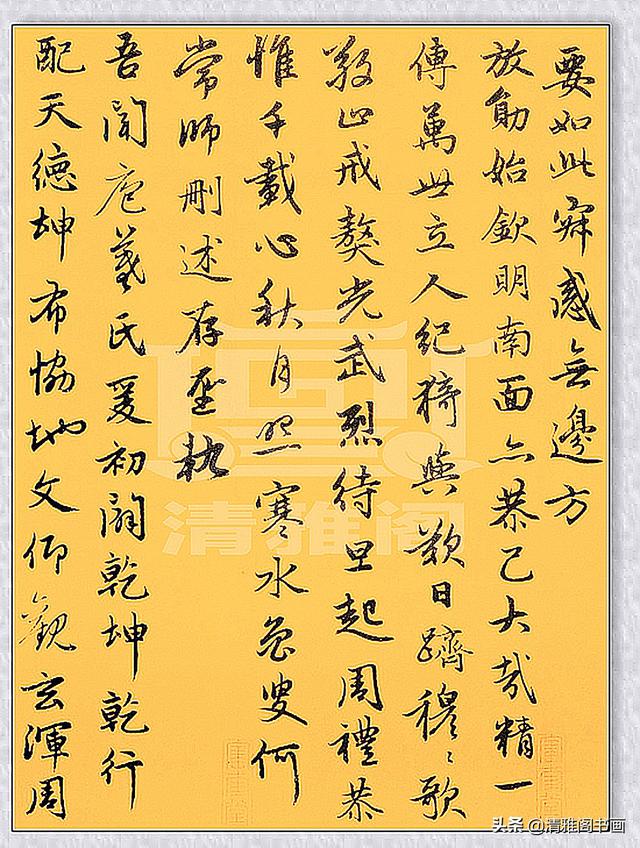 要如此寂感無邊方
放勛始欽明南面亦恭己大哉精一
傳萬世立人紀猗與歎日躋穆〻歌
敬止戒獒光武烈待旦起周禮恭
惟千載心秋月照寒水魯叟何
常師刪述存聖軌
吾聞庖羲氏爰初闢乾坤乾行
配天德坤布協地文仰觀玄渾周
清雅阁
头条 @清雅阁书画